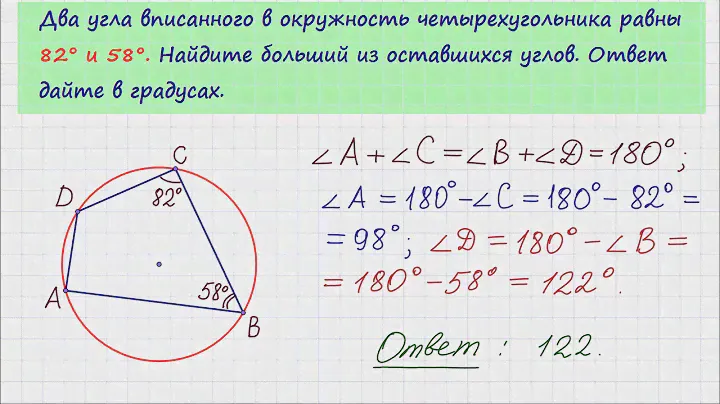 Два угла вписанного в окружность четырехугольника равны
82° и 58°. Найдите больший из оставшихся углов. Ответ
дайте в градусах.
C
82°
D
A
58°
B
∠A+∠C=∠B+∠D=180°;
∠A=180°-∠C=180°-82°=
=98°; ∠D=180°-∠B=
=180°-58°=122°.
Ответ: 122.